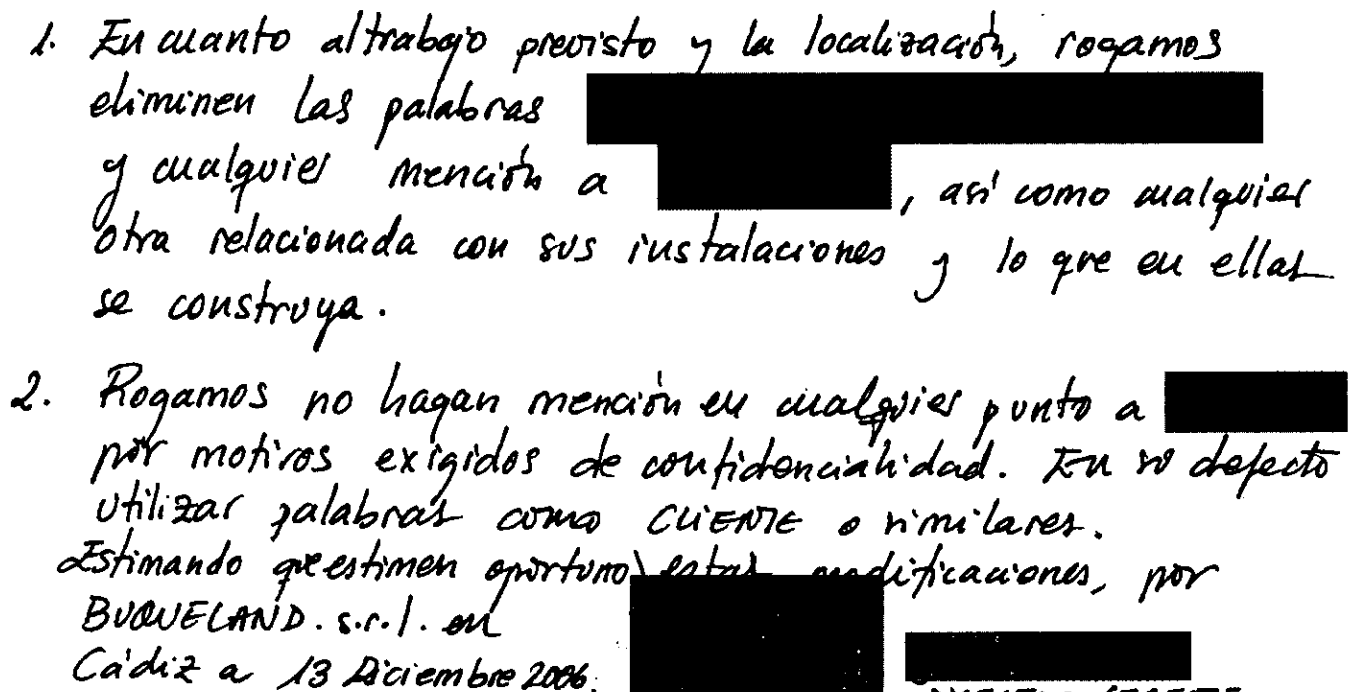 1. En cuanto al trabajo previsto y la localización, rogamos
eliminen las palabras
y cualquier mención a , así como cualquier
otra relacionada con sus instalaciones y lo que en ellas
se construya.
2. Rogamos no hagan mención en cualquier punto a
por motivos exigidos de confidencialidad. En su defecto
utilizar palabras como CLIENTE o similares.
Estimando que estimen oportuno estas modificaciones, por
BUQUELAND. s.r.l. en
Cádiz a 13 Diciembre 2006.